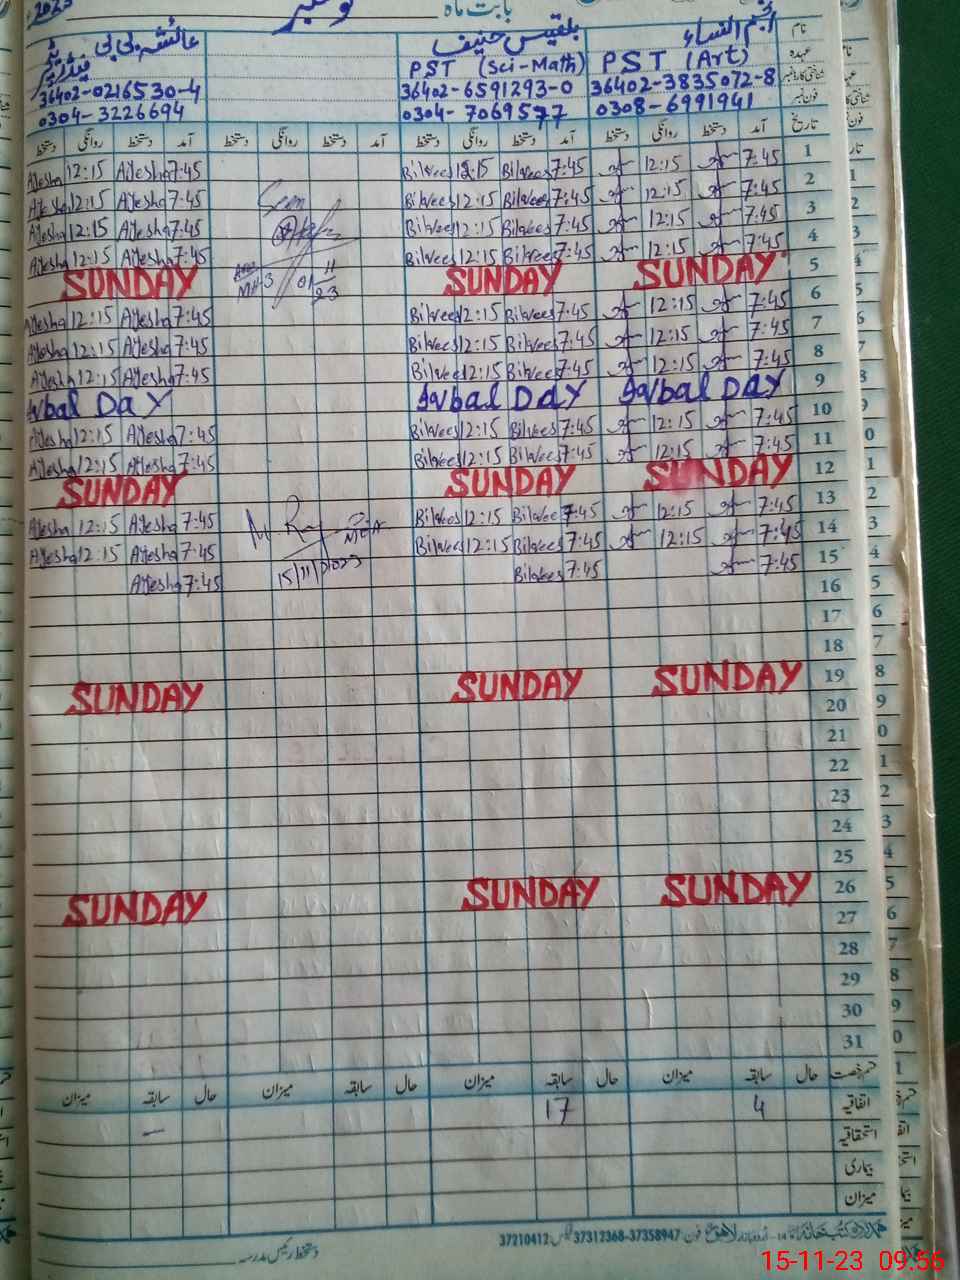 2023 نومبر بابت ماہ
نام انجم النساء بلقیس حنیف عائشہ بی بی
عہدہ PST (Art) PST (Sci-Math)
شناختی کارڈ نمبر 36402-3835072-8 36402-6591293-0 36402-0216530-4
فون نمبر 0308-6991941 0304-7069577 0304-3226694
تاریخ آمد دستخط روانگی دستخط آمد دستخط روانگی دستخط آمد دستخط روانگی دستخط آمد دستخط روانگی دستخط
1 7:45 12:15 7:45 Bilqees 12:15 Bilqees 7:45 Ayesha 12:15 Ayesha
2 7:45 12:15 7:45 Bilqees 12:15 Bilqees 7:45 Ayesha 12:15 Ayesha
3 7:45 12:15 7:45 Bilqees 12:15 Bilqees 7:45 Ayesha 12:15 Ayesha
4 7:45 12:15 7:45 Bilqees 12:15 Bilqees 7:45 Ayesha 12:15 Ayesha
5 SUNDAY SUNDAY SUNDAY
6 7:45 12:15 7:45 Bilqees 12:15 Bilqees 7:45 Ayesha 12:15 Ayesha
7 7:45 12:15 7:45 Bilqees 12:15 Bilqees 7:45 Ayesha 12:15 Ayesha
8 7:45 12:15 7:45 Bilqees 12:15 Bilqees 7:45 Ayesha 12:15 Ayesha
9 Iqbal Day Iqbal Day Iqbal Day
10 7:45 12:15 7:45 Bilqees 12:15 Bilqees 7:45 Ayesha 12:15 Ayesha
11 7:45 12:15 7:45 Bilqees 12:15 Bilqees 7:45 Ayesha 12:15 Ayesha
12 SUNDAY SUNDAY SUNDAY
13 7:45 12:15 7:45 Bilqees 12:15 Bilqees 7:45 Ayesha 12:15 Ayesha
14 7:45 12:15 7:45 Bilqees 12:15 Bilqees 7:45 Ayesha 12:15 Ayesha
15 7:45 7:45 Bilqees 15/11/2023 7:45 Ayesha
16
17
18
19 SUNDAY SUNDAY SUNDAY
20
21
22
23
24
25
26 SUNDAY SUNDAY SUNDAY
27
28
29
30
31
قسم رخصت حال سابقہ میزان حال سابقہ میزان حال سابقہ میزان حال سابقہ میزان
اتفاقیہ 4 17
استحقاقیہ
بیماری
میزان
فون 37358947-37312368 فیکس 37210412
دستخط رئیس مدرسہ
15-11-23 09:56